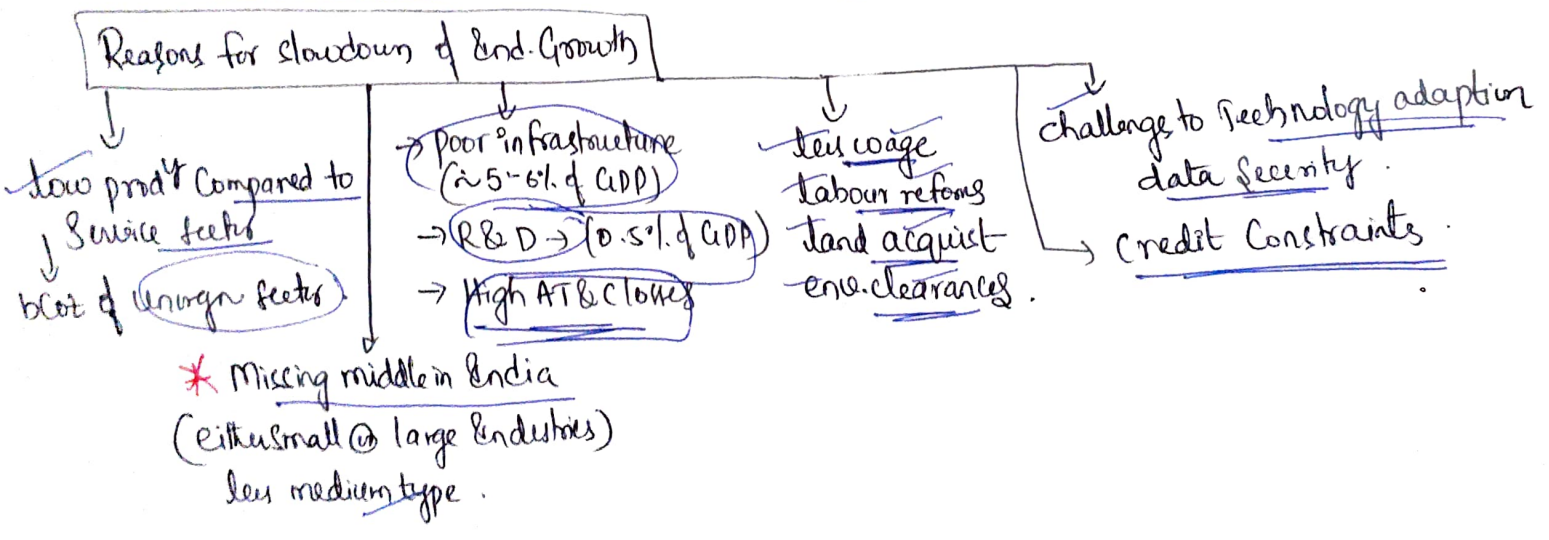 Reasons for slowdown of Ind. Growth
Low prodty compared to
Service sector
bcoz of unorgn sector.
* Missing middle in India
(either small or large Industries)
less medium type.
→ Poor infrastructure
(~5-6% of GDP)
→ R&D → (0.5% of GDP)
→ High AT&C losses
labour reforms
land acquist
env. clearances.
challenge to Technology adaption
data security.
Credit Constraints.